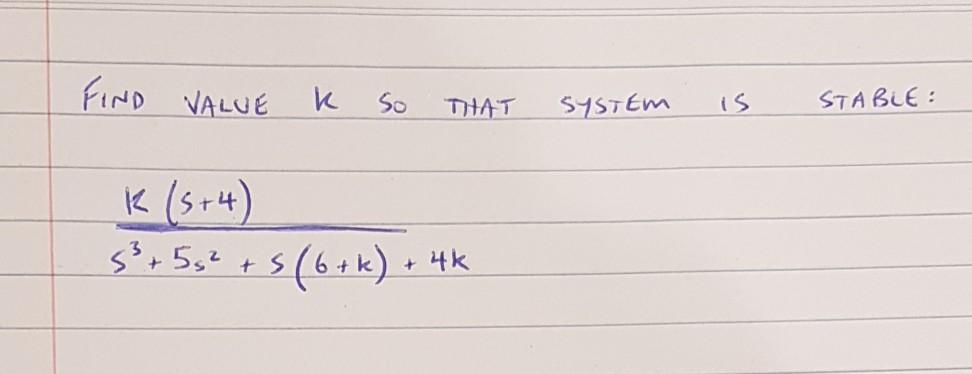 FIND VALUE K SO THAT SYSTEM IS STABLE:
K (s+4)
s³ + 5s² + s(6+k) + 4k